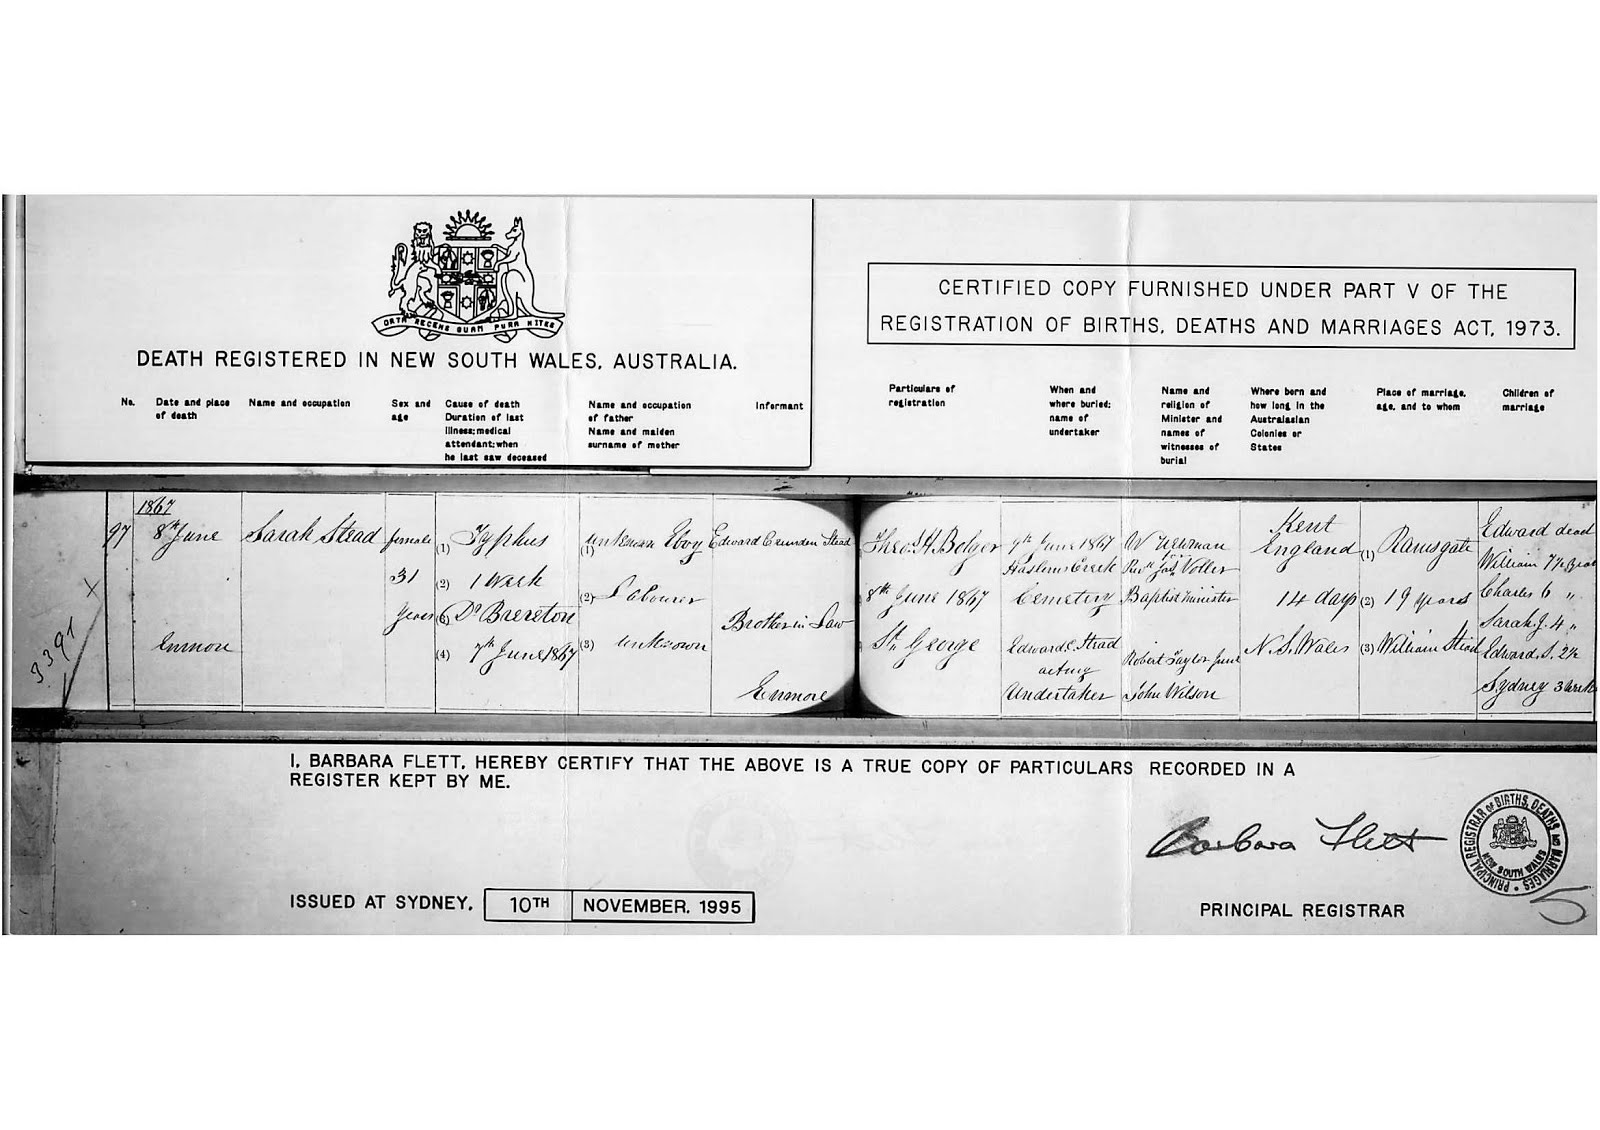 ORTA RECENS QUAM PURA NITES
DEATH REGISTERED IN NEW SOUTH WALES, AUSTRALIA.
CERTIFIED COPY FURNISHED UNDER PART V OF THE
REGISTRATION OF BIRTHS, DEATHS AND MARRIAGES ACT, 1973.
No.
Date and place
of death
Name and occupation
Sex and
age
Cause of death
Duration of last
illness; medical
attendant; when
he last saw deceased
Name and occupation
of father
Name and maiden
surname of mother
Informant
Particulars of
registration
When and
where buried;
name of
undertaker
Name and
religion of
Minister and
names of
witnesses of
burial
Where born and
how long in the
Australasian
Colonies or
States
Place of marriage,
age, and to whom
Children of
marriage
3391
97
1867
8th June
Enmore
Sarah Stead
female
31
Years
(1) Typhus
(2) 1 Week
(3) Dr Brereton
(4) 7th June 1867
(1) unknown Eboy
(2) Labourer
(3) unknown
Edward Camden Stead
Brother in Law
Enmore
Theo. H. Belger
8th June 1867
St. George
9th June 1867
Haslems Creek
Cemetery
Edward C. Stead
acting
Undertaker
W Newman
Revd Jas Voller
Baptist Minister
Robert Taylor Junr
John Wilson
Kent
England
14 days
N. S. Wales
(1) Ramsgate
(2) 19 years
(3) William Stead
Edward dead
William 7½
Charles 6 "
Sarah J. 4 "
Edward S. 2½
Sydney 3 weeks
I, BARBARA FLETT, HEREBY CERTIFY THAT THE ABOVE IS A TRUE COPY OF PARTICULARS RECORDED IN A
REGISTER KEPT BY ME.
Barbara Flett
PRINCIPAL REGISTRAR OF BIRTHS, DEATHS AND MARRIAGES
NEW SOUTH WALES
5
ISSUED AT SYDNEY, 10TH NOVEMBER, 1995
PRINCIPAL REGISTRAR